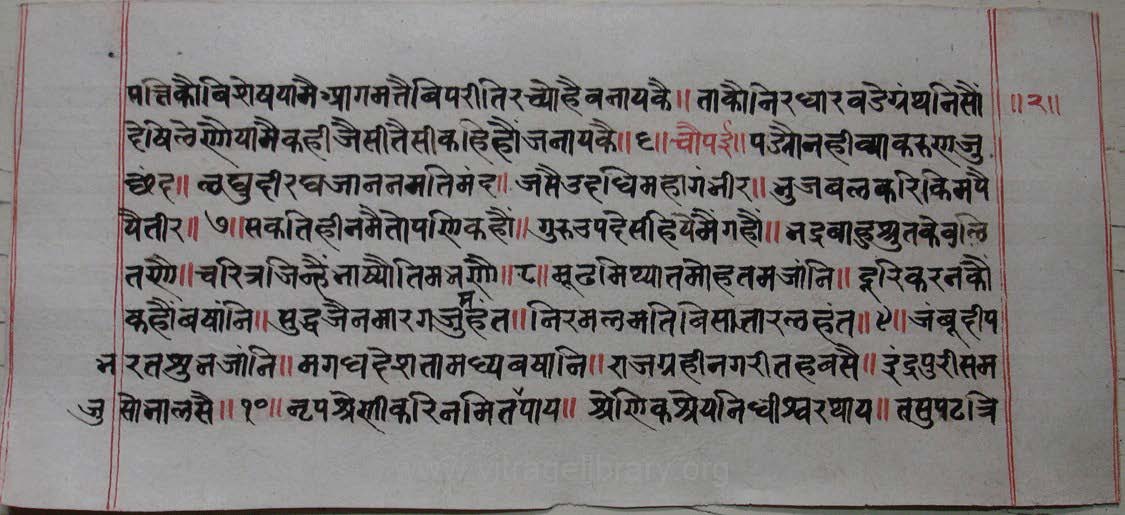 पत्तिकौविशेषयामैआगमतैबिपरीतिरच्योहैबनायकै॥ ताकौनिरधारबडेग्रंथनिसौं ॥२॥
देषिलेणौयामैकहीजैसीतैसीकहिहौंजनायकै॥६॥चौपई॥पढ्यौनहीव्याकरणजु
छंद॥ लघुदीरघजाननमतिमंद॥ जसैउदधिमहागंभीर॥ भुजबलकरिकिमपै
पैतीर॥७॥सकतिहीनमैतोपणिकहौं॥ गुरुउपदेसहियेमैगहौं॥ भद्रबाहुश्रुतकेवलि
तणौ॥चरित्रजिन्हैंभाष्यौतिमभणौ॥८॥मूढमिथ्यातमोहतमजांनि॥ दूरिकरनकौं
कहौंबषांनि॥ सुद्धजैनमारगजुमहंत॥ निरमलमतिबिसातारलहंत॥९॥ जंबूदीप
भरतशुभजांनि॥ मगधदेशतामध्यबषानि॥ राजग्रहीनगरीतहबसै॥ इंद्रपुरीसम
जुसोभालसै॥१०॥नृपश्रेणीकरिनमितपाय॥ श्रेणिकश्रेयनिधीश्वरथाय॥ तसुपटत्रि
www.vitragelibrary.org